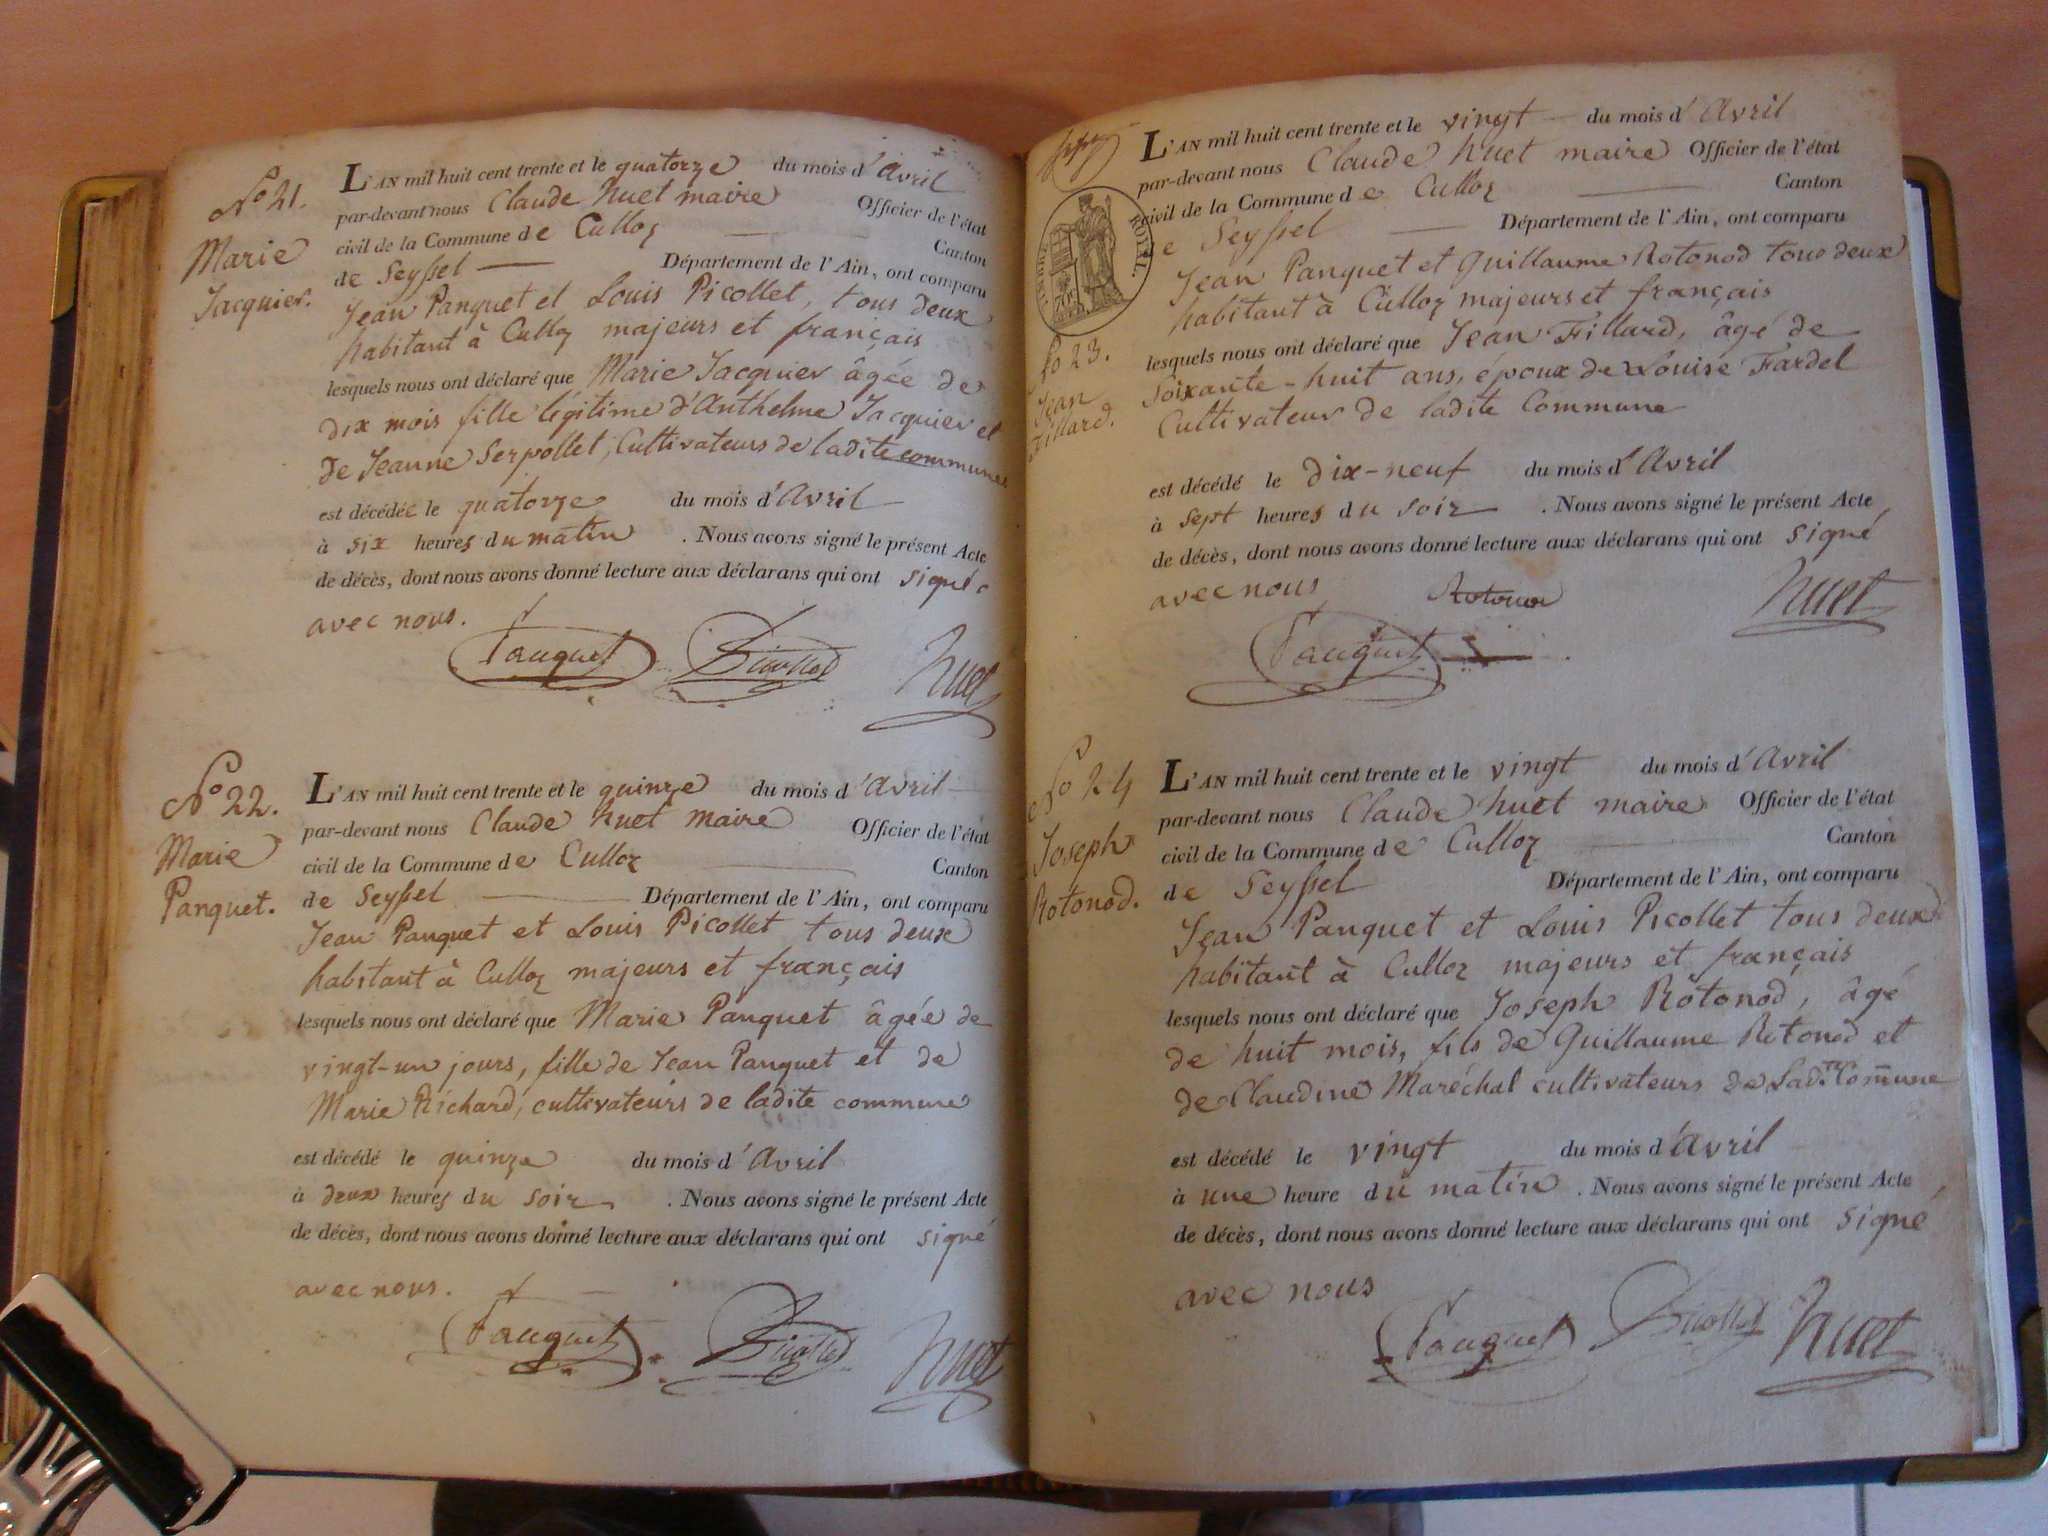 No 21.
Marie
Jacquier.
L'AN mil huit cent trente et le quatorze du mois d'Avril
par-devant nous Claude huet maire Officier de l'état
civil de la Commune de Culloz Canton
de Seyssel Département de l'Ain, ont comparu
Jean Panquet et Louis Picollet, tous deux
habitant à Culloz majeurs et français
lesquels nous ont déclaré que Marie Jacquier âgée de
dix mois fille légitime d'Anthelme Jacquier et
de Jeanne Serpollet, Cultivateurs de ladite commune
est décédée le quatorze du mois d'Avril
à six heures du matin . Nous avons signé le présent Acte
de décès, dont nous avons donné lecture aux déclarans qui ont signé
avec nous.
Panquet Picollet huet
No 22.
Marie
Panquet.
L'AN mil huit cent trente et le quinze du mois d'Avril
par-devant nous Claude huet maire Officier de l'état
civil de la Commune de Culloz Canton
de Seyssel Département de l'Ain, ont comparu
Jean Panquet et Louis Picollet tous deux
habitant à Culloz majeurs et français
lesquels nous ont déclaré que Marie Panquet âgée de
vingt-un jours, fille de Jean Panquet et de
Marie Richard, cultivateurs de ladite commune
est décédé le quinze du mois d'Avril
à deux heures du soir . Nous avons signé le présent Acte
de décès, dont nous avons donné lecture aux déclarans qui ont signé
avec nous.
Panquet Picollet huet
TIMBRE ROYAL.
70
No 23.
Jean
Fillard.
L'AN mil huit cent trente et le vingt du mois d'Avril
par-devant nous Claude huet maire Officier de l'état
civil de la Commune de Culloz Canton
e Seyssel Département de l'Ain, ont comparu
Jean Panquet et Guillaume Rotonod tous deux
habitant à Culloz majeurs et français
lesquels nous ont déclaré que Jean Fillard, âgé de
Soixante-huit ans, époux de Louise Fardel
Cultivateur de ladite Commune
est décédé le dix-neuf du mois d'Avril
à sept heures du soir . Nous avons signé le présent Acte
de décès, dont nous avons donné lecture aux déclarans qui ont signé
avec nous Rotonod huet
Panquet
No 24
Joseph
Rotonod.
L'AN mil huit cent trente et le vingt du mois d'Avril
par-devant nous Claude huet maire Officier de l'état
civil de la Commune de Culloz Canton
de Seyssel Département de l'Ain, ont comparu
Jean Panquet et Louis Picollet tous deux
habitant à Culloz majeurs et français
lesquels nous ont déclaré que Joseph Rotonod, âgé
de huit mois, fils de Guillaume Rotonod et
de Claudine Maréchal cultivateurs de Ladte Commune
est décédé le vingt du mois d'Avril
à une heure du matin . Nous avons signé le présent Acte
de décès, dont nous avons donné lecture aux déclarans qui ont signé
avec nous
Panquet Picollet huet